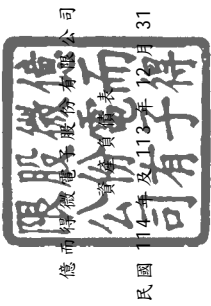 億而得微電子股份有限公司
資產負債表
民國 114 年及 113 年 12 月 31
億而得
微電子
股份有
限公司